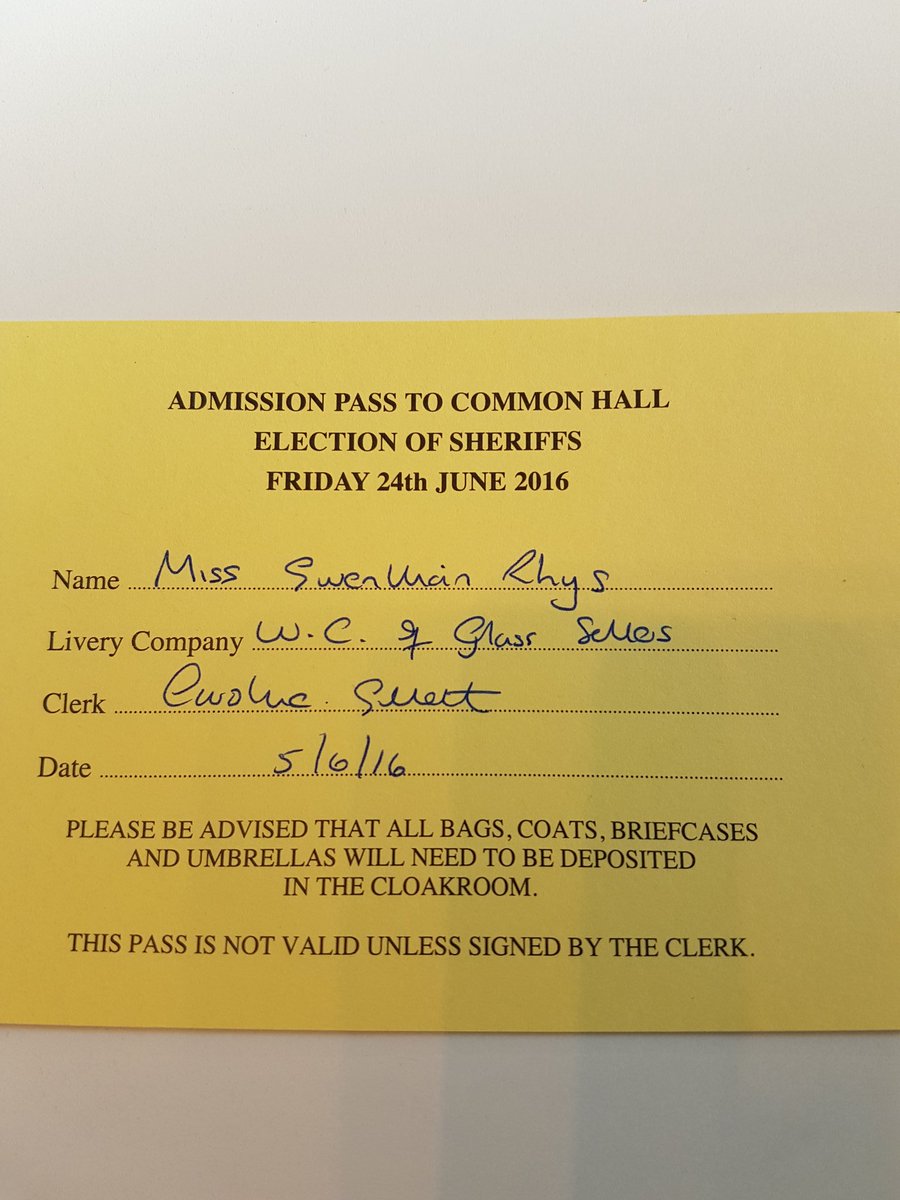 ADMISSION PASS TO COMMON HALL
ELECTION OF SHERIFFS
FRIDAY 24th JUNE 2016
Name Miss Gwenllian Rhys
Livery Company W.C. of Glass Sellers
Clerk Caroline
Date 5/6/16
PLEASE BE ADVISED THAT ALL BAGS, COATS, BRIEFCASES
AND UMBRELLAS WILL NEED TO BE DEPOSITED
IN THE CLOAKROOM.
THIS PASS IS NOT VALID UNLESS SIGNED BY THE CLERK.